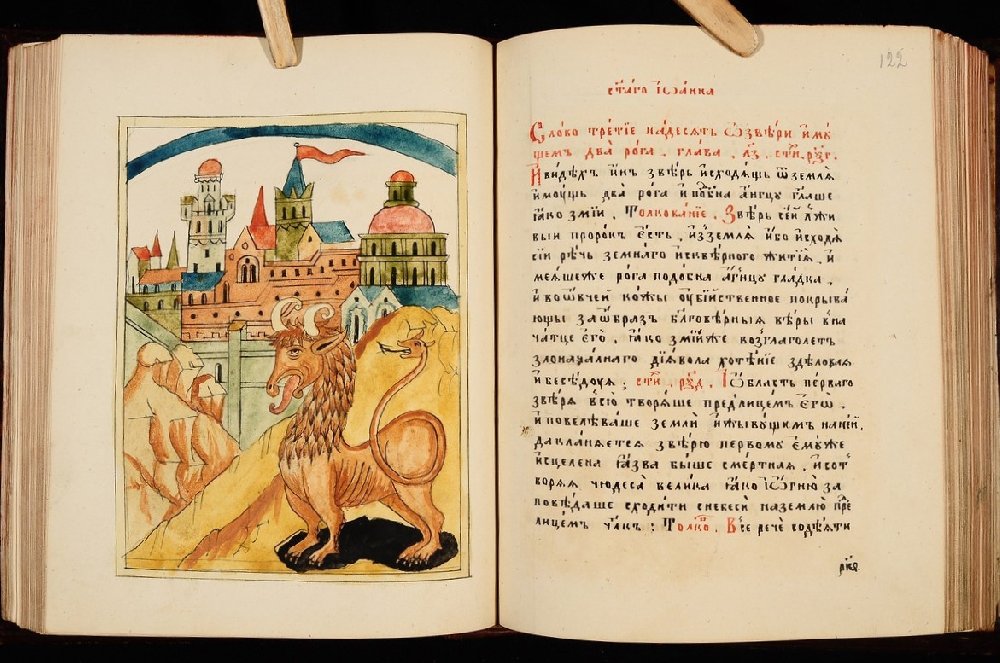 122
ст҃а́го іѡа́нна
Сло́во тре́тїе на́десѧть ѿзвѣ́ри и҆мꙋ́
щемъ два̀ ро́га . глава̀ .
И҆ви́дѣхъ и҆нъ звѣ́рь и҆сходѧ́щь ѿ землѧ̀
и҆мꙋ́щь два̀ ро́га и҆ подо́бна а҆́гнцꙋ гл҃аше
ꙗ҆́ко змі́й . Толкова́нїе . Звѣ́рь се́й лжи́
вый проро́къ є҆́сть , и҆з̾землѧ̀ и҆́бо и҆сходѧ̀
сїѝ рѣ́чь земна́го и҆скве́рнаго житїѧ̀ , и҆
ро́га подо́бна а҆́гнцꙋ гла́дка ,
и҆воѻ҆́вчей ко́жы ᲂу҆бі́йственное покрыва́
ющы заѻ҆́бразъ бл҃гове́рныѧ вѣ́ры
є҆гѡ̀ . ꙗ҆́ко змі́йже возглаго́летъ
злонача́лнаго дїѧ́вола хотѣ́нїе здѣ́ловаѧ
и҆бесѣ́дꙋѧ ; И҆ѻ҆́бласть пе́рваго
звѣ́рѧ всю̀ творѧ́ше пред̾лице́мъ є҆гѡ̀ .
и҆повелѣва́ше землѝ и҆жывꙋ́щымъ на не́й .
да кла́нѧетсѧ звѣ́рю пе́рвомꙋ є҆мꙋ́же
и҆сцеле́на ꙗ҆́зва бы́ше сме́ртнаѧ . и҆сот
ворѧ́ѧ чюдеса̀ вели́ка ꙗ҆́ко и҆ѻ҆гню̀ за
повѣ́даше сходи́ти с̾небесѐ на зе́млю пре
лице́мъ : Толко . Все речѐ содѣ́ѧти
рк҃ѳ